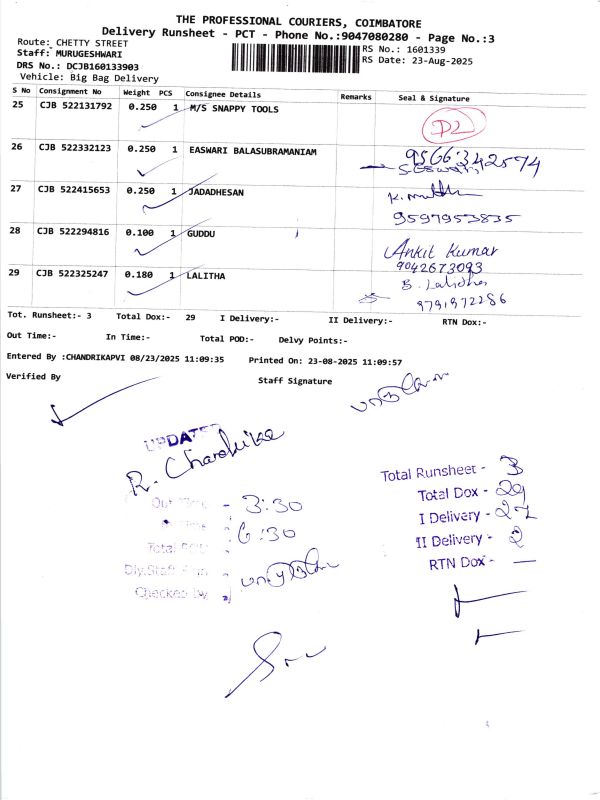 THE PROFESSIONAL COURIERS, COIMBATORE
Delivery Runsheet - PCT - Phone No.:9047080280 - Page No.:3
Route: CHETTY STREET
Staff: MURUGESHWARI
DRS No.: DCJB160133903
Vehicle: Big Bag Delivery
RS No.: 1601339
RS Date: 23-Aug-2025
S No Consignment No Weight PCS Consignee Details Remarks Seal & Signature
25 CJB 522131792 0.250 1 M/S SNAPPY TOOLS D2
26 CJB 522332123 0.250 1 EASWARI BALASUBRAMANIAM 9566342574
27 CJB 522415653 0.250 1 JADADHESAN
9597953835
28 CJB 522294816 0.100 1 GUDDU Ankit Kumar
9042673093
29 CJB 522325247 0.180 1 LALITHA
9791972286
Tot. Runsheet:- 3 Total Dox:- 29 I Delivery:- II Delivery:- RTN Dox:-
Out Time:- In Time:- Total POD:- Delvy Points:-
Entered By :CHANDRIKAPVI 08/23/2025 11:09:35 Printed On: 23-08-2025 11:09:57
Verified By Staff Signature
UPDATED
R. Chandrika
Out Time - 3:30
In Time : 6:30
Total POD :
Dly.Staff Sign :
Checked by :
Total Runsheet - 3
Total Dox - 29
I Delivery - 27
II Delivery - 2
RTN Dox - —